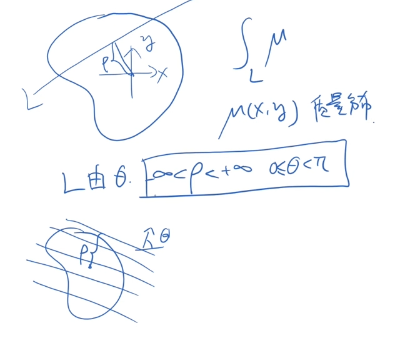 y
ρ
x
L
∫_L μ
μ(x,y) 质量分布
L由θ. -∞<ρ<+∞ 0≤θ<π
ρ
θ